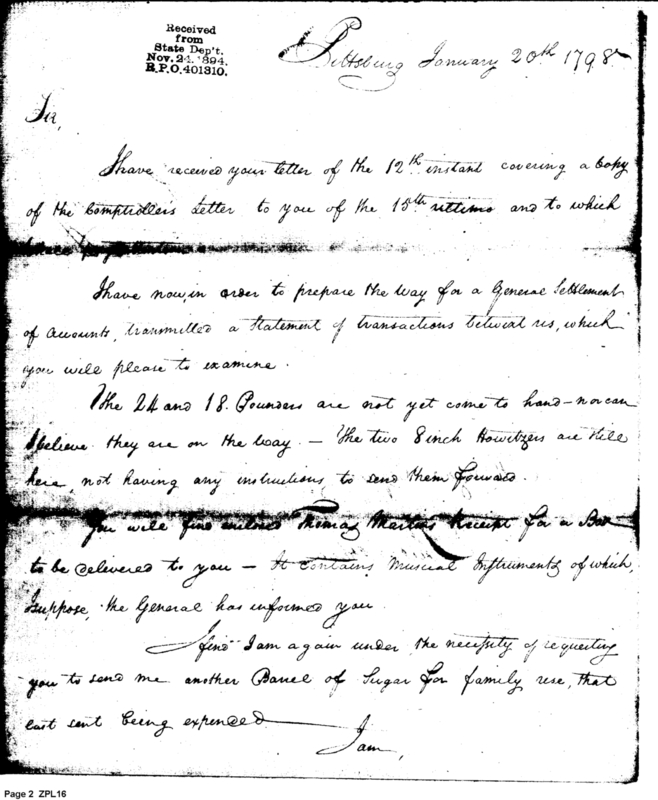 Received
from
State Dep't.
Nov. 24. 1894.
R.P.O. 401310.
Pittsburg January 20th 1798
Sir,
I have received your letter of the 12th instant covering a Copy
of the Comptrollers Letter to you of the 15th ultimo and to which
I have now in order to prepare the way for a General Settlement
of Accounts, transmitted a Statement of transactions betwixt us, which
you will please to examine.
The 24 and 18. Pounders are not yet come to hand – nor can
I believe they are on the way. – The two 8 inch Howitzers are still
here, not having any instructions to send them forward.
You will find enclosed Thomas Martins Receipt for a Box
to be delivered to you – It contains Musical Instruments of which,
I suppose, the General has informed you.
I find I am again under the necessity of requesting
you to send me another Barrel of Sugar for family use, that
last sent being expended
I am,
Page 2 ZPL16